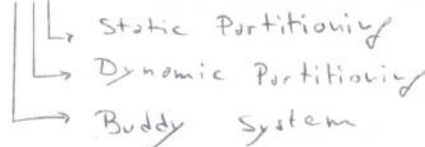 Static Partitioning
Dynamic Partitioning
Buddy System